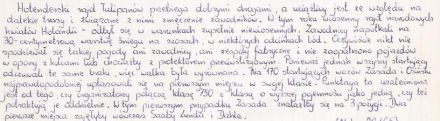 Holenderski rajd Tulipanów przebiega dobrymi drogami, a uciążliwy jest ze względu na
dalekie trasy i związane z nimi zmęczenie zawodników. W tym roku wiosenny rajd narodowych
kwiatów Holandii - odbył się w warunkach zupełnie niewiosennych. Zawodnicy napotkali na
30-centymetrową warstwę śniegu na szosach, w niektórych odcinkach lód. Oczywiście nikt nie
spodziewał się takiej pogody ani zawodnicy, ani zespoły fabryczne i nie zaopatrzono pojazdów
w opony z kolcami lub chociażby z protektorem przeciwślizgowym. Ponieważ jednak wszyscy startujący
odczuwali te same braki, więc walka była wyrównana. Na 170 startujących wozów Zasada i Osiński
najprawdopodobniej uplasowali się na pierwszym miejscu w swojej klasie. Punktacja ta uzależniona
jest od tego, czy organizatorzy połączą klasę 750 z klasą o wyższej pojemności jako jedną, czy też
potraktują je oddzielnie. W tym pierwszym przypadku Zasada znalazłby się na 3 pozycji. Dwa
pierwsze miejsca zajęłyby wówczas Saaby Lundii i